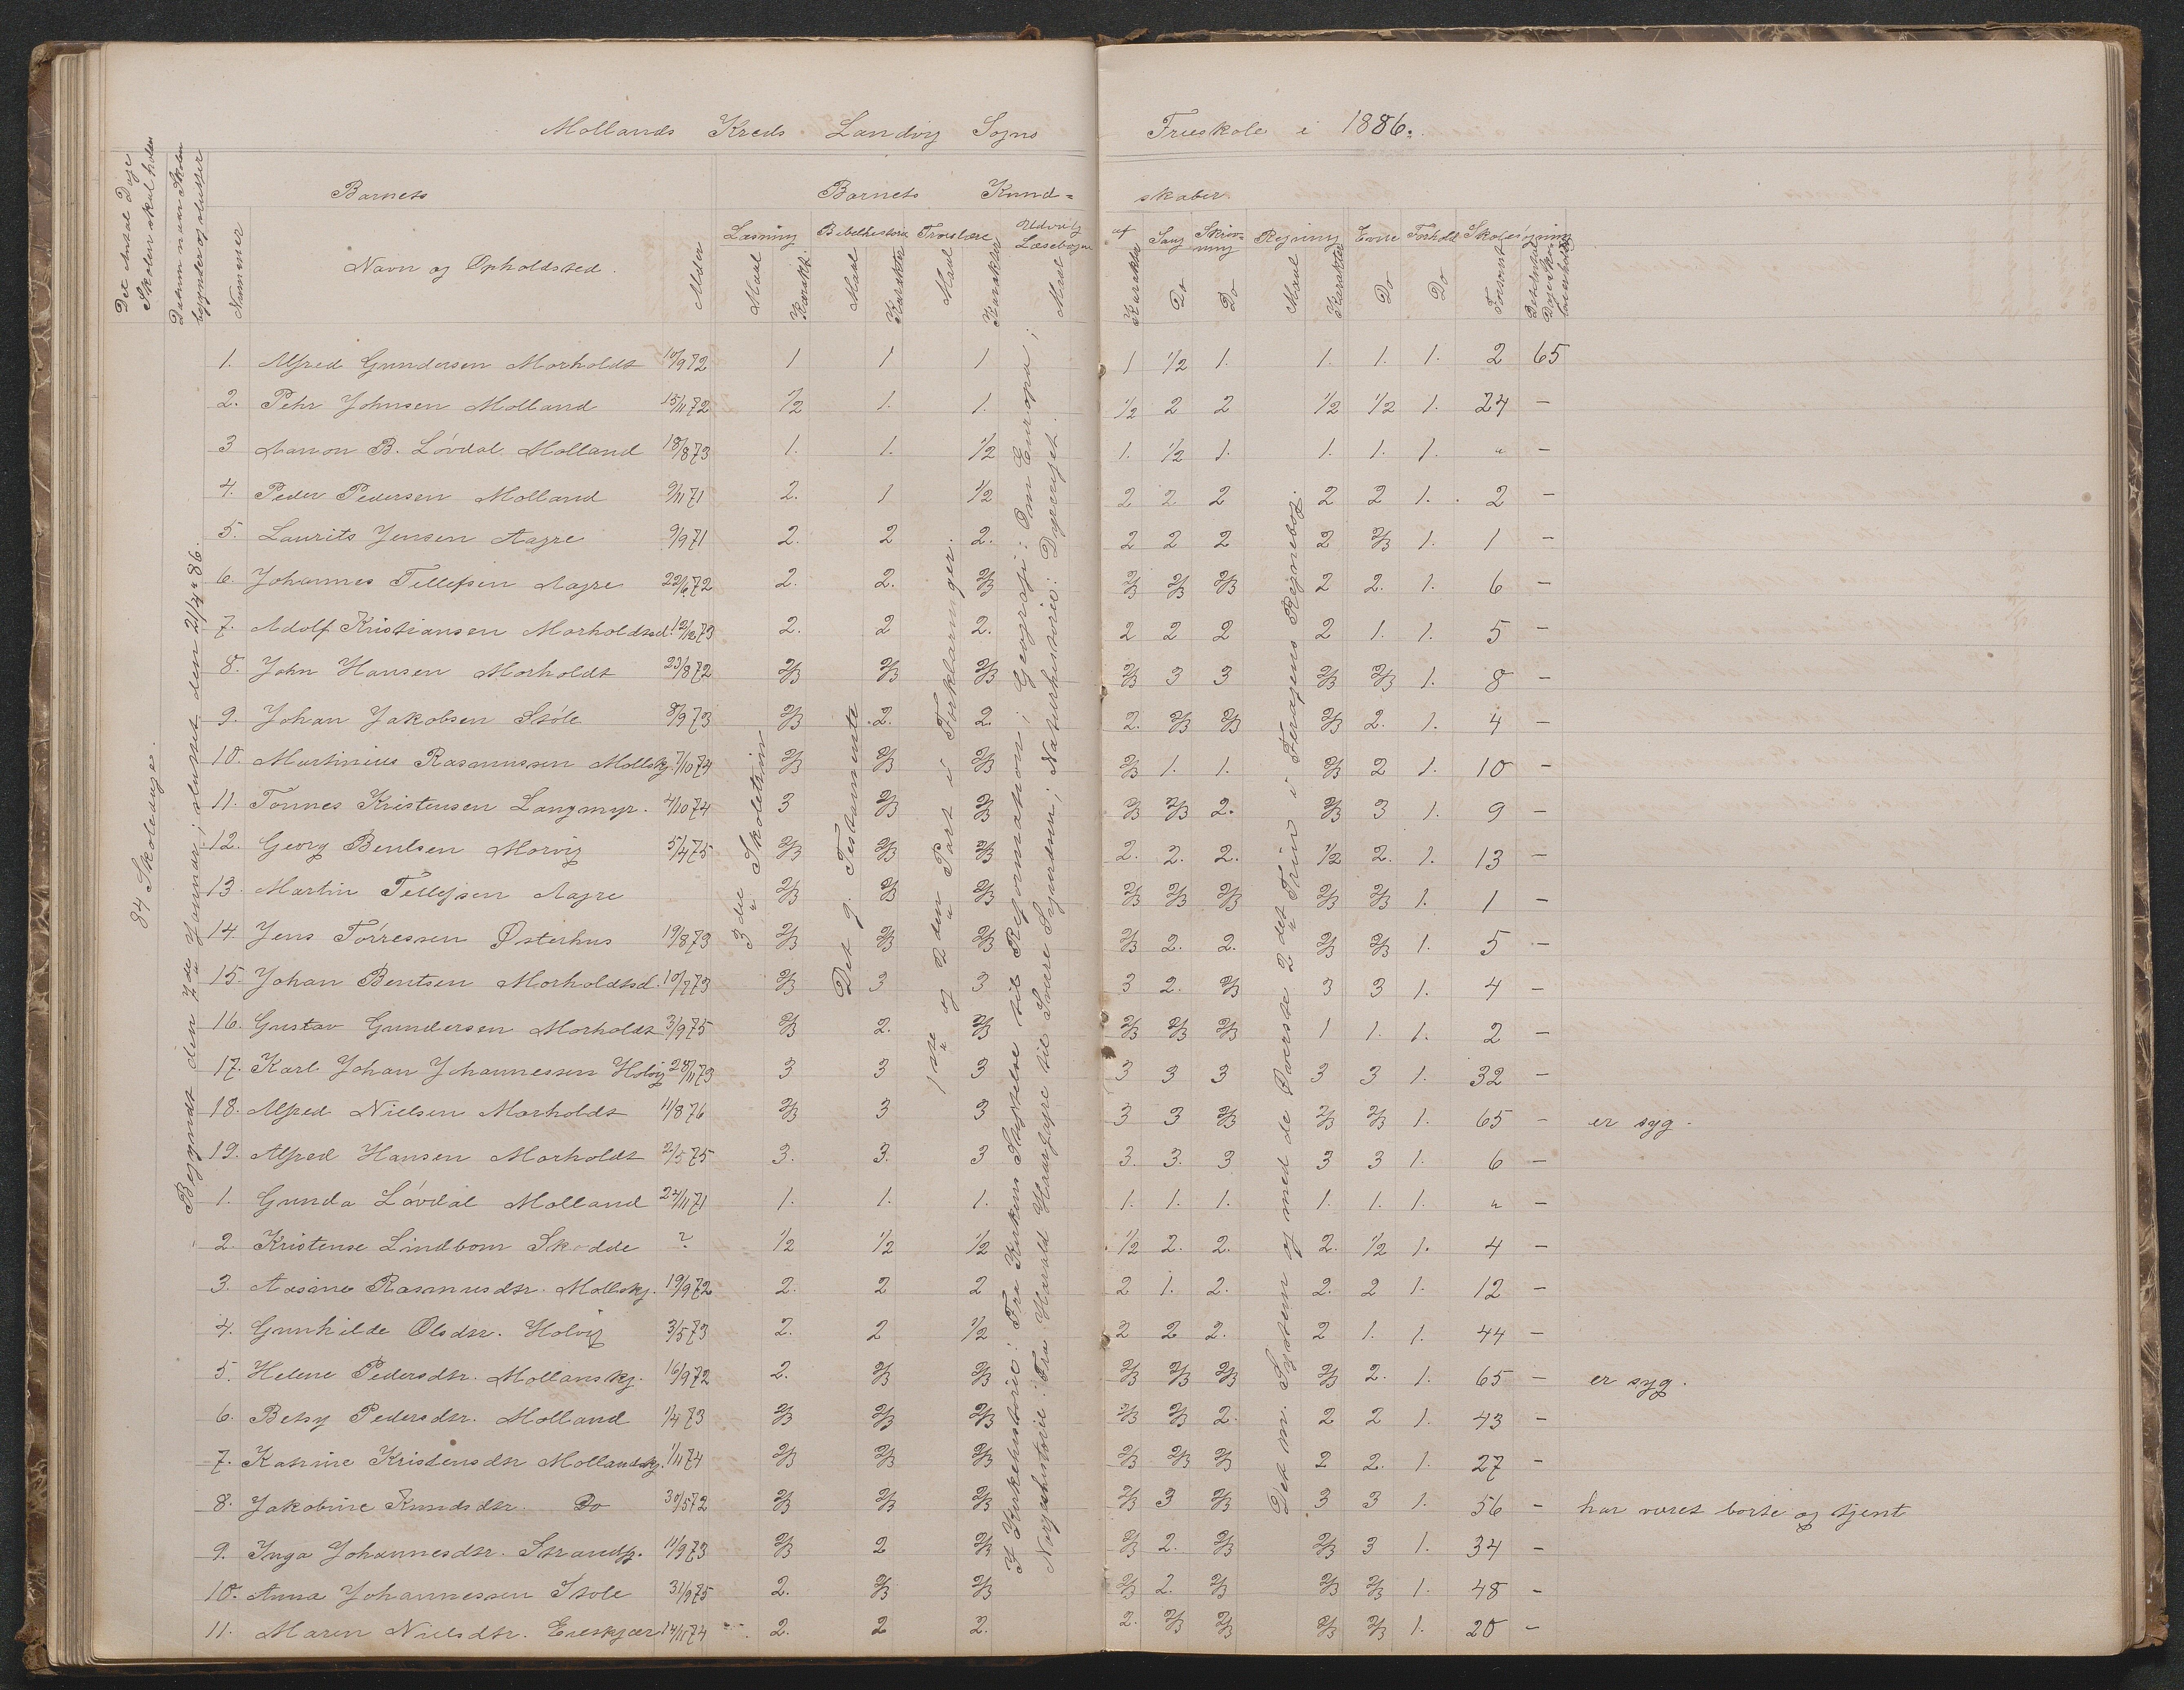 Mollands Kreds Landvig Sogns Frieskole i 1886.
Det Antal Dage Skolen skal holdes
Datum naar Skolen begynder og slutter
Barnets
Barnets Kundskaber
Nummer
Navn og Opholdssted.
Alder
Læsning Bibelhistorie Troeslære Udvalg af Læsebogen Sang Skrivning Regning Evne Forhold Skolesøgning
Maal Karakter Maal Karakter Maal Karakter Maal Karakter Do Do Maal Karakter Do Do Forsømt
84 Skoledage.
Begyndt den 7de Januar; sluttet den 21/4 86.
3die Skoletrin
Det g. Testamente
1ste og 2den Part i Forklaringer.
I Kirkehistorie: Fra Kirkens Stiftelse til Reformationen; Geografi: Om Europa;
Norgeshistorie: Fra Harald Haarfagre til Sverre Sigurdsøn; Naturhistorie: Dyreriget.
Det m. System og med de Øverste 2det Trin i Feragens Regnebog.
1. Alfred Gundersen Morholdt 10/9 72 1 1 1 1 1/2 1. 1. 1. 1. 2 65
2. Pehr Johnsen Molland 15/11 72 1/2 1. 1. 1/2 2 2 1/2 1/2 1. 24 –
3 Aanon B. Løvdal Molland 18/8 73 1. 1. 1/2 1. 1/2 1. 1. 1. 1. " –
4. Peder Pedersen Molland 9/11 71 2. 1 1/2 2 2. 2 2 2 1. 2 –
5. Laurits Jensen Aagre 9/9 71 2. 2 2. 2 2 2 2 2/3 1. 1 –
6. Johannes Tellefsen Aagre 22/6 72 2. 2. 2/3 2/3 2/3 2/3 2 2. 1. 6 –
7. Adolf Kristiansen Morholdtsd. 12/12 73 2. 2 2. 2 2 2 2 1. 1. 5 –
8. John Hansen Morholdt 23/8 72 2/3 2/3 2/3 2/3 3 3 2/3 2/3 1. 8 –
9. Johan Jakobsen Støle 8/9 73 2/3 2. 2. 2. 2/3 2/3 2/3 2. 1. 4 –
10. Martinius Rasmussen Mollskj. 7/10 74 2/3 2/3 2/3 2/3 1. 1. 2/3 2 1. 10 –
11. Tønnes Kristensen Langmyr. 4/10 74 3 2/3 2/3 2/3 2/3 2. 2/3 3 1. 9 –
12. Georg Bentsen Morvig 5/4 75 2/3 2/3 2/3 2. 2. 2. 1/2 2. 1. 13 –
13. Martin Tellefsen Aagre 2/3 2/3 2/3 2/3 2/3 2/3 2/3 2/3 1. 1 –
14. Jens Tørressen Østerhus 19/8 73 2/3 2/3 2/3 2/3 2. 2. 2/3 2/3 1. 5 –
15. Johan Bentsen Morholdtsd. 10/7 73 2/3 3 3 3 2. 2/3 3 3 1. 4 –
16. Gustav Gundersen Morholdt 3/9 75 2/3 2. 2/3 2/3 2/3 2/3 1 1. 1. 2 –
17. Karl Johan Johannessen Holvig 28/11 73 3 3 3 3 3 3 3 3 1. 32 –
18. Alfred Nielsen Morholdt 11/8 76 2/3 3 3 3 3 2/3 2/3 2/3 1. 65 – er syg.
19. Alfred Hansen Morholdt 2/5 75 3. 3. 3 3. 3. 3 3 3 1. 6 –
1. Gunda Løvdal Molland 24/11 71 1. 1. 1. 1. 1. 1. 1. 1. 1. " –
2. Kristense Lindbom Skodde ? 1/2 1/2 1/2 1/2 2. 2. 2. 1/2 1. 4 –
3. Aasine Rasmusdtr. Mollskj. 19/9 72 2. 2 2 2 1. 2. 2. 2 1. 12 –
4. Gunhilde Olsdtr. Holvig 3/5 73 2. 2 1/2 2 2 2. 2 1. 1. 44 –
5. Helene Pedersdtr. Mollanskj. 16/9 72 2. 2/3 2/3 2/3 2/3 2/3 2/3 2. 1. 65 – er syg.
6. Betsy Pedersdtr. Molland 1/4 73 2/3 2/3 2/3 2/3 2/3 2. 2 2 1. 43 –
7. Katrine Kristensdtr Mollandskj. 1/11 74 2/3 2/3 2/3 2/3 2/3 2/3 2 2. 1. 27 –
8. Jakobine Knudsdtr. Do 30/5 72 2/3 2/3 2/3 2/3 3 2/3 3 3 1. 56 – har været borte og tjent
9. Inga Johannesdtr. Strandfj. 11/9 73 2/3 2 2/3 2/3 2. 2/3 2/3 3 1. 34 –
10. Anna Johannessen Støle 31/9 75 2. 2/3 2/3 2/3 2. 2/3 2/3 2/3 1. 48 –
11. Maren Nielsdtr. Eneskjær 14/11 74 2. 2 2. 2. 2/3 2/3 2/3 2/3 1. 20 –